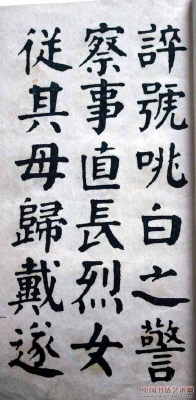 誶號咷白之警
察事直長烈女
從其母歸戴遂
中国书法艺术网